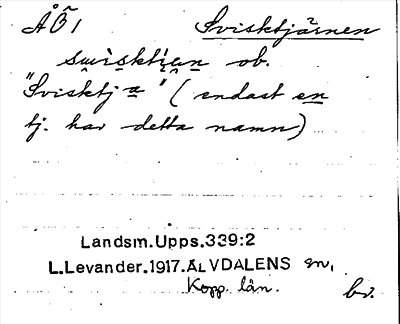 ÅB1 Svisktjärnen
swisktjen ob.
"Svisktj a" (endast en
tj. har detta namn)
Landsm.Upps.339:2
L.Levander.1917.ÄLVDALENS sn,
Kopp. län.